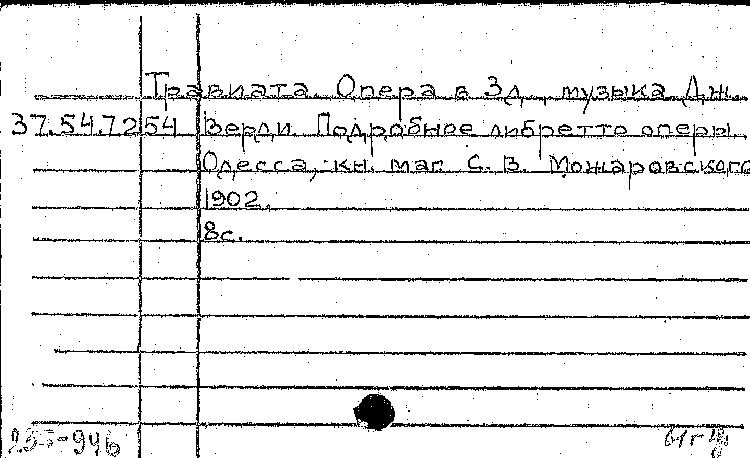 Травиата. Опера в 3д., музыка Дж.
37.54.7254 Верди. Подробное либретто оперы.
Одесса, кн. маг. С. В. Можаровского
1902.
8с.